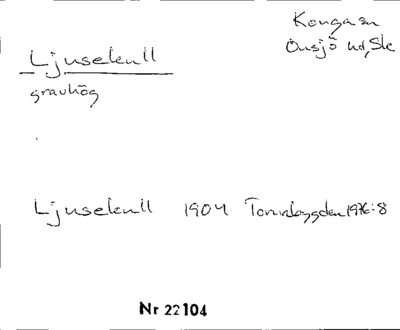 Konga sn
Onsjö hd, Sk
Ljusekull
gravhög
Ljusekull 1904 Tornabygden 1976:8
Nr 22104